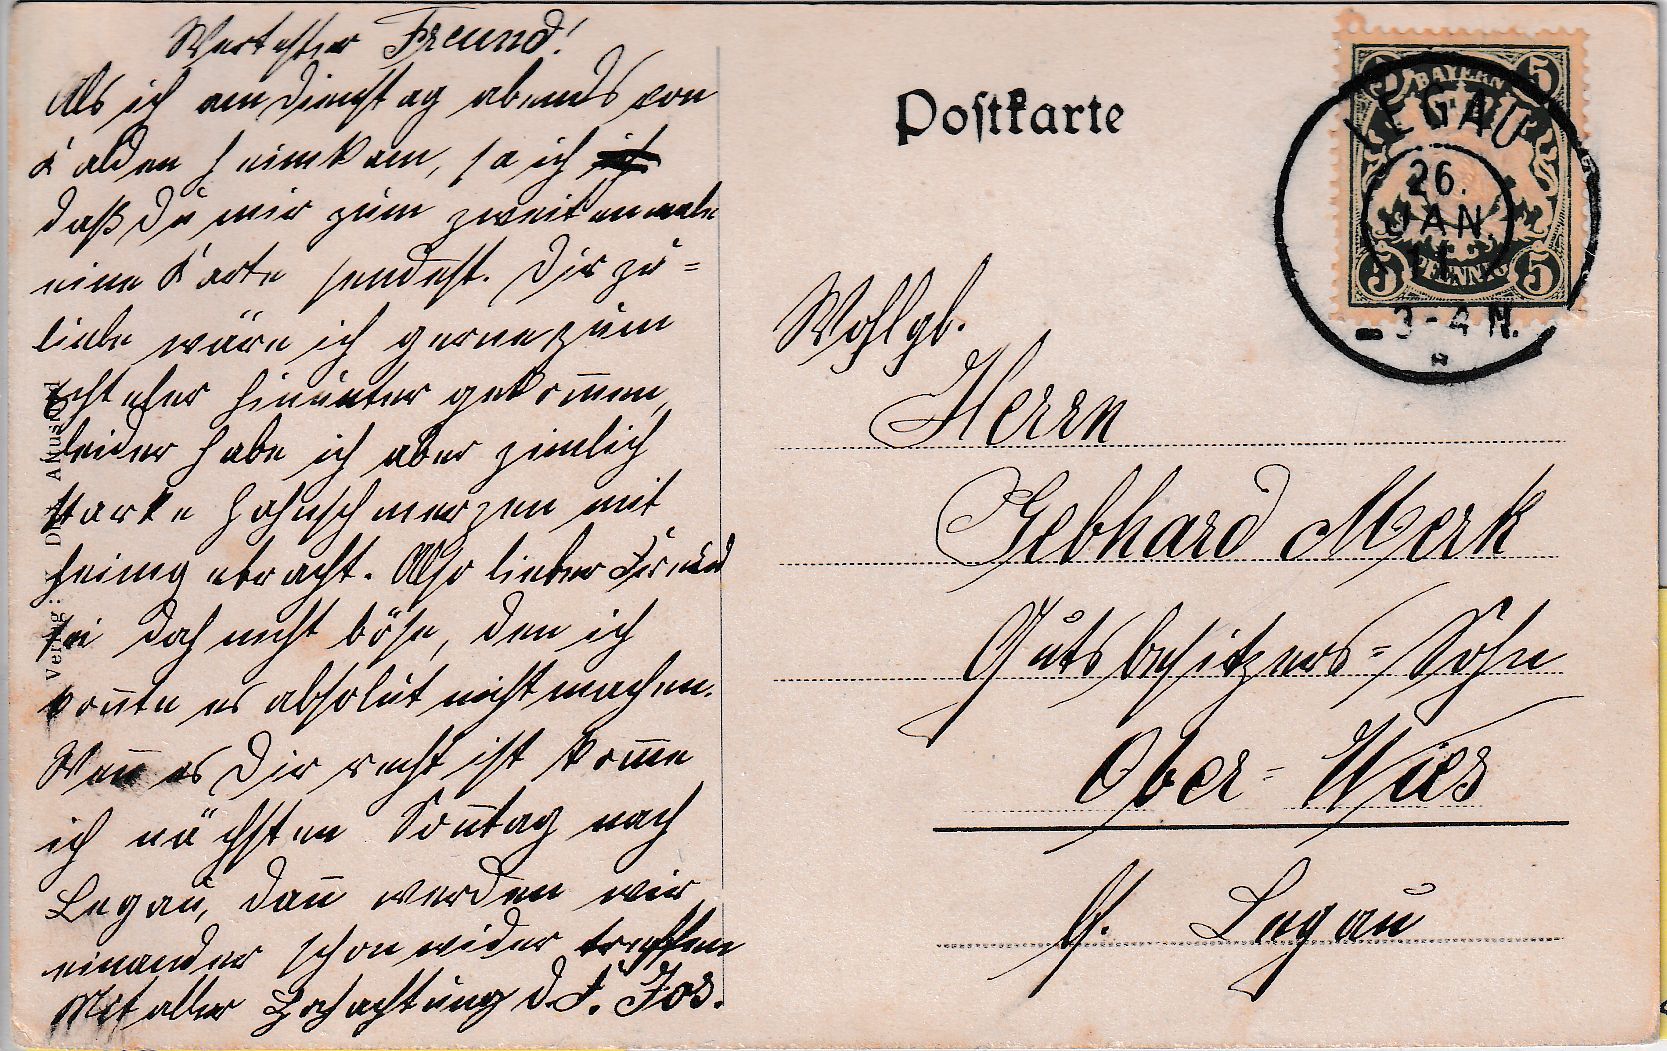 Wertester Freund!
Als ich am Dienstag abends von
Kalden heimkam, sa ich
daß Du mir zum zweitenmale
eine Karte sendest. Dir zu-
liebe wäre ich gerne zum
hinunter gekom̅en,
leider habe ich aber zimlich
starke Zahnschmerzen mit
heimgebracht. Also lieber Freund
sei doch nicht böse, den ich
kon̅te es absolut nicht machen.
Wen̅ es Dir recht ist kom̅e
ich nächsten Son̅tag nach
Legau, dan̅ werden wir
einander schon wider treffen
Mit aller Hochachtung d. F. Jos.
Verlag:
Postkarte
BAYERN
5 5
PFENNIG
5 5
LEGAU
26.
JAN.
11
3-4 N.
Wohlgb.
Herrn
Gebhard Merk
Gutsbesitzers=Sohn
Ober=Wies
b. Legau